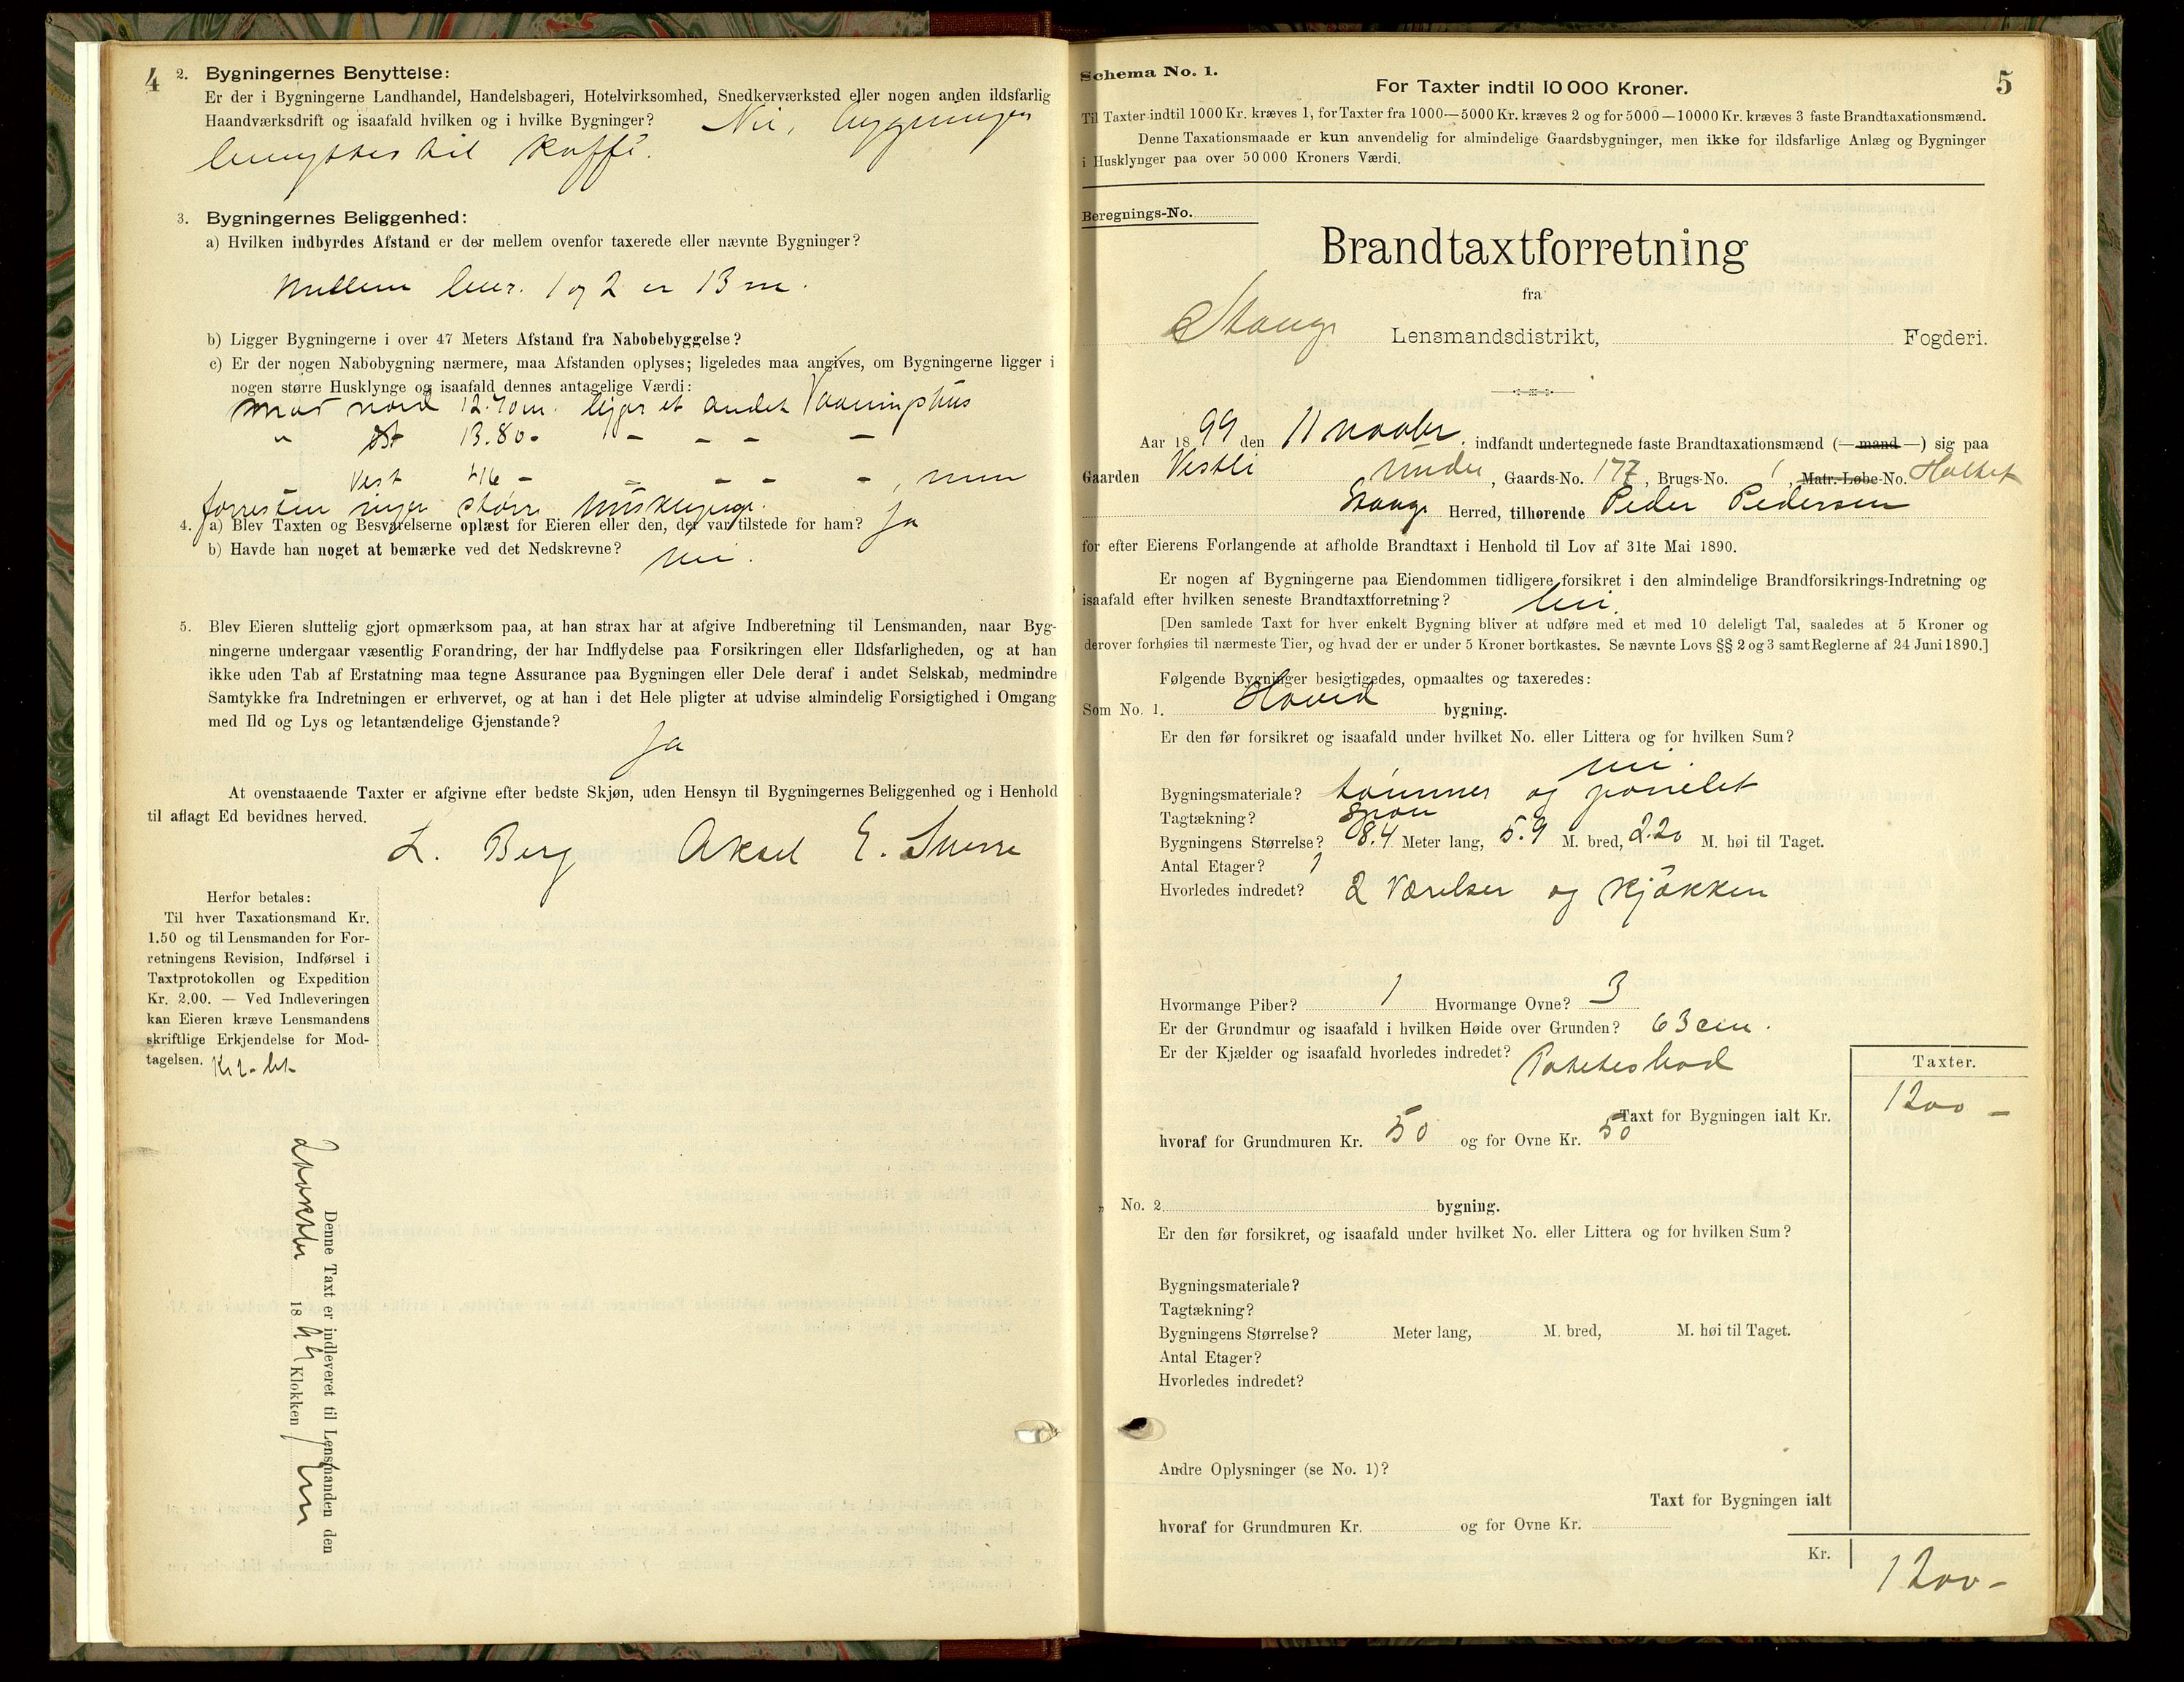 4
2. Bygningernes Benyttelse:
Er der i Bygningerne Landhandel, Handelsbageri, Hotelvirksomhed, Snedkerværksted eller nogen anden ildsfarlig
Haandværksdrift og isaafald hvilken og i hvilke Bygninger? Nei, bygningen
benyttes til Kaffe.
3. Bygningernes Beliggenhed:
a) Hvilken indbyrdes Afstand er der mellem ovenfor taxerede eller nævnte Bygninger?
Mellem 1 og 2 er 13 m.
b) Ligger Bygningerne i over 47 Meters Afstand fra Nabobebyggelse?
c) Er der nogen Nabobygning nærmere, maa Afstanden oplyses; ligeledes maa angives, om Bygningerne ligger i
nogen større Husklynge og isaafald dennes antagelige Værdi:
mod nord 12.70 m. ligger et andet Vaaningshus
" øst 13.80 - - - - -
Vest 46 - - - - -, men
forresten ingen større Husklynge.
4. a) Blev Taxten og Besvarelserne oplæst for Eieren eller den, der var tilstede for ham? Ja
b) Havde han noget at bemærke ved det Nedskrevne? nei.
5. Blev Eieren sluttelig gjort opmærksom paa, at han strax har at afgive Indberetning til Lensmanden, naar Byg-
ningerne undergaar væsentlig Forandring, der har Indflydelse paa Forsikringen eller Ildsfarligheden, og at han
ikke uden Tab af Erstatning maa tegne Assurance paa Bygningen eller Dele deraf i andet Selskab, medmindre
Samtykke fra Indretningen er erhvervet, og at han i det Hele pligter at udvise almindelig Forsigtighed i Omgang
med Ild og Lys og letantændelige Gjenstande?
Ja
At ovenstaaende Taxter er afgivne efter bedste Skjøn, uden Hensyn til Bygningernes Beliggenhed og i Henhold
til aflagt Ed bevidnes herved.
L. Berg Aksel E. Sverre
Herfor betales:
Til hver Taxationsmand Kr.
1.50 og til Lensmanden for For-
retningens Revision, Indførsel i
Taxtprotokollen og Expedition
Kr. 2.00. — Ved Indleveringen
kan Eieren kræve Lensmandens
skriftlige Erkjendelse for Mod-
tagelsen. Kr 2 - bet
Denne Taxt er indleveret til Lensmanden den
1899 Klokken
5
Schema No. 1.
For Taxter indtil 10 000 Kroner.
Til Taxter indtil 1000 Kr. kræves 1, for Taxter fra 1000—5000 Kr. kræves 2 og for 5000—10000 Kr. kræves 3 faste Brandtaxationsmænd.
Denne Taxationsmaade er kun anvendelig for almindelige Gaardsbygninger, men ikke for ildsfarlige Anlæg og Bygninger
i Husklynger paa over 50 000 Kroners Værdi.
Beregnings-No.
Brandtaxtforretning
fra
Stange Lensmandsdistrikt, Fogderi.
Aar 1899 den 11 novbr. indfandt undertegnede faste Brandtaxationsmænd (—mand—) sig paa
Gaarden Vestli under, Gaards-No. 177, Brugs-No. 1, Matr.-Løbe-No. Holtet
Stange Herred, tilhørende Peder Pedersen
for efter Eierens Forlangende at afholde Brandtaxt i Henhold til Lov af 31te Mai 1890.
Er nogen af Bygningerne paa Eiendommen tidligere forsikret i den almindelige Brandforsikrings-Indretning og
isaafald efter hvilken seneste Brandtaxtforretning? nei.
[Den samlede Taxt for hver enkelt Bygning bliver at udføre med et med 10 deleligt Tal, saaledes at 5 Kroner og
derover forhøies til nærmeste Tier, og hvad der er under 5 Kroner bortkastes. Se nævnte Lovs §§ 2 og 3 samt Reglerne af 24 Juni 1890.]
Følgende Bygninger besigtigedes, opmaaltes og taxeredes:
Som No. 1. Hoved bygning.
Er den før forsikret og isaafald under hvilket No. eller Littera og for hvilken Sum?
nei.
Bygningsmateriale? tømmer og panelet
Tagtækning? spon
Bygningens Størrelse? 8.4 Meter lang, 5.9 M. bred, 2.20 M. høi til Taget.
Antal Etager? 1
Hvorledes indredet? 2 Værelser og Kjøkken
Hvormange Piber? 1 Hvormange Ovne? 3
Er der Grundmur og isaafald i hvilken Høide over Grunden? 63 cm.
Er der Kjælder og isaafald hvorledes indredet? Potetesbod
Taxter.
Taxt for Bygningen ialt Kr. 1200 -
hvoraf for Grundmuren Kr. 50 og for Ovne Kr. 50
" No. 2 bygning.
Er den før forsikret, og isaafald under hvilket No. eller Littera og for hvilken Sum?
Bygningsmateriale?
Tagtækning?
Bygningens Størrelse? Meter lang, M. bred, M. høi til Taget.
Antal Etager?
Hvorledes indredet?
Andre Oplysninger (se No. 1)?
Taxt for Bygningen ialt
hvoraf for Grundmuren Kr. og for Ovne Kr.
Kr. 1200 -